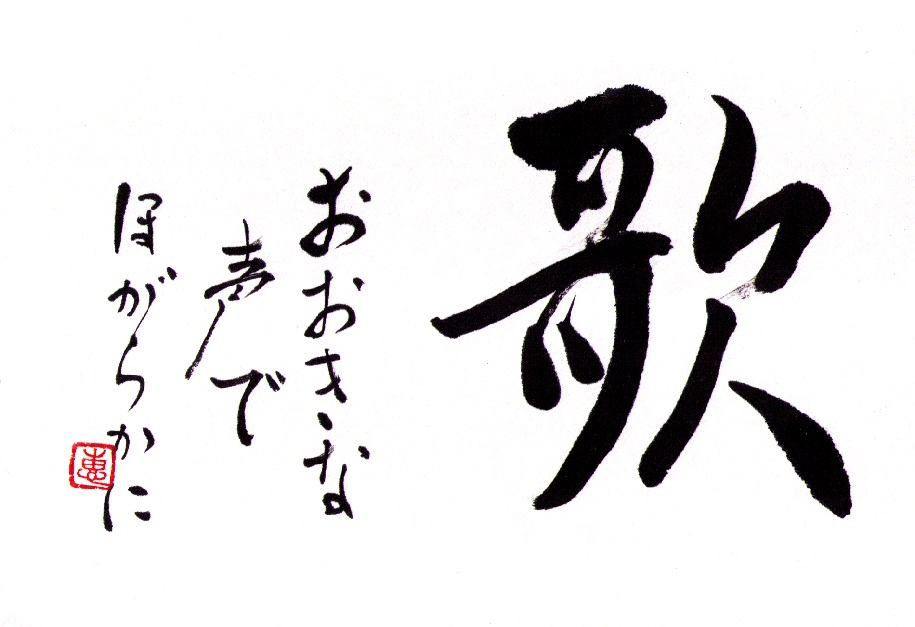 歌
おおきな
声で
ほがらかに
恵